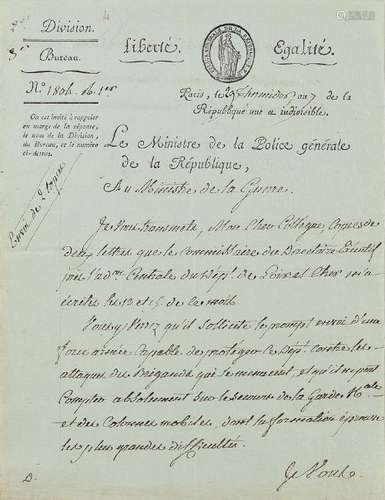 Division.
Bureau.
Liberté.
Egalité.
N.º
On est invité à rappeler
en marge de la réponse,
le nom de la Division,
du Bureau, et le numéro
ci-dessus.
Envoi de 2 copies
Paris, le 29 Thermidor an 7 de la
République une et indivisible.
Le Ministre de la Police générale
de la République,
Au Ministre de la Guerre.
Je vous transmets, Mon Cher Collègue, Copies de
deux lettres que le Commissaire du Directoire Exécutif
près l'adm. Centrale du Dép.t de Loir et Cher m'a
écrites les 13 et 15 de ce mois.
Vous y verrez qu'il sollicite le prompt envoi d'une
force armée capable de protéger ce Dép.t contre les
attaques des Brigands qui le menacent et qu'il ne peut
Compter absolument sur le secours de la Garde N.ale
et des Colonnes mobiles, dont la formation éprouve
les plus grandes difficultés.